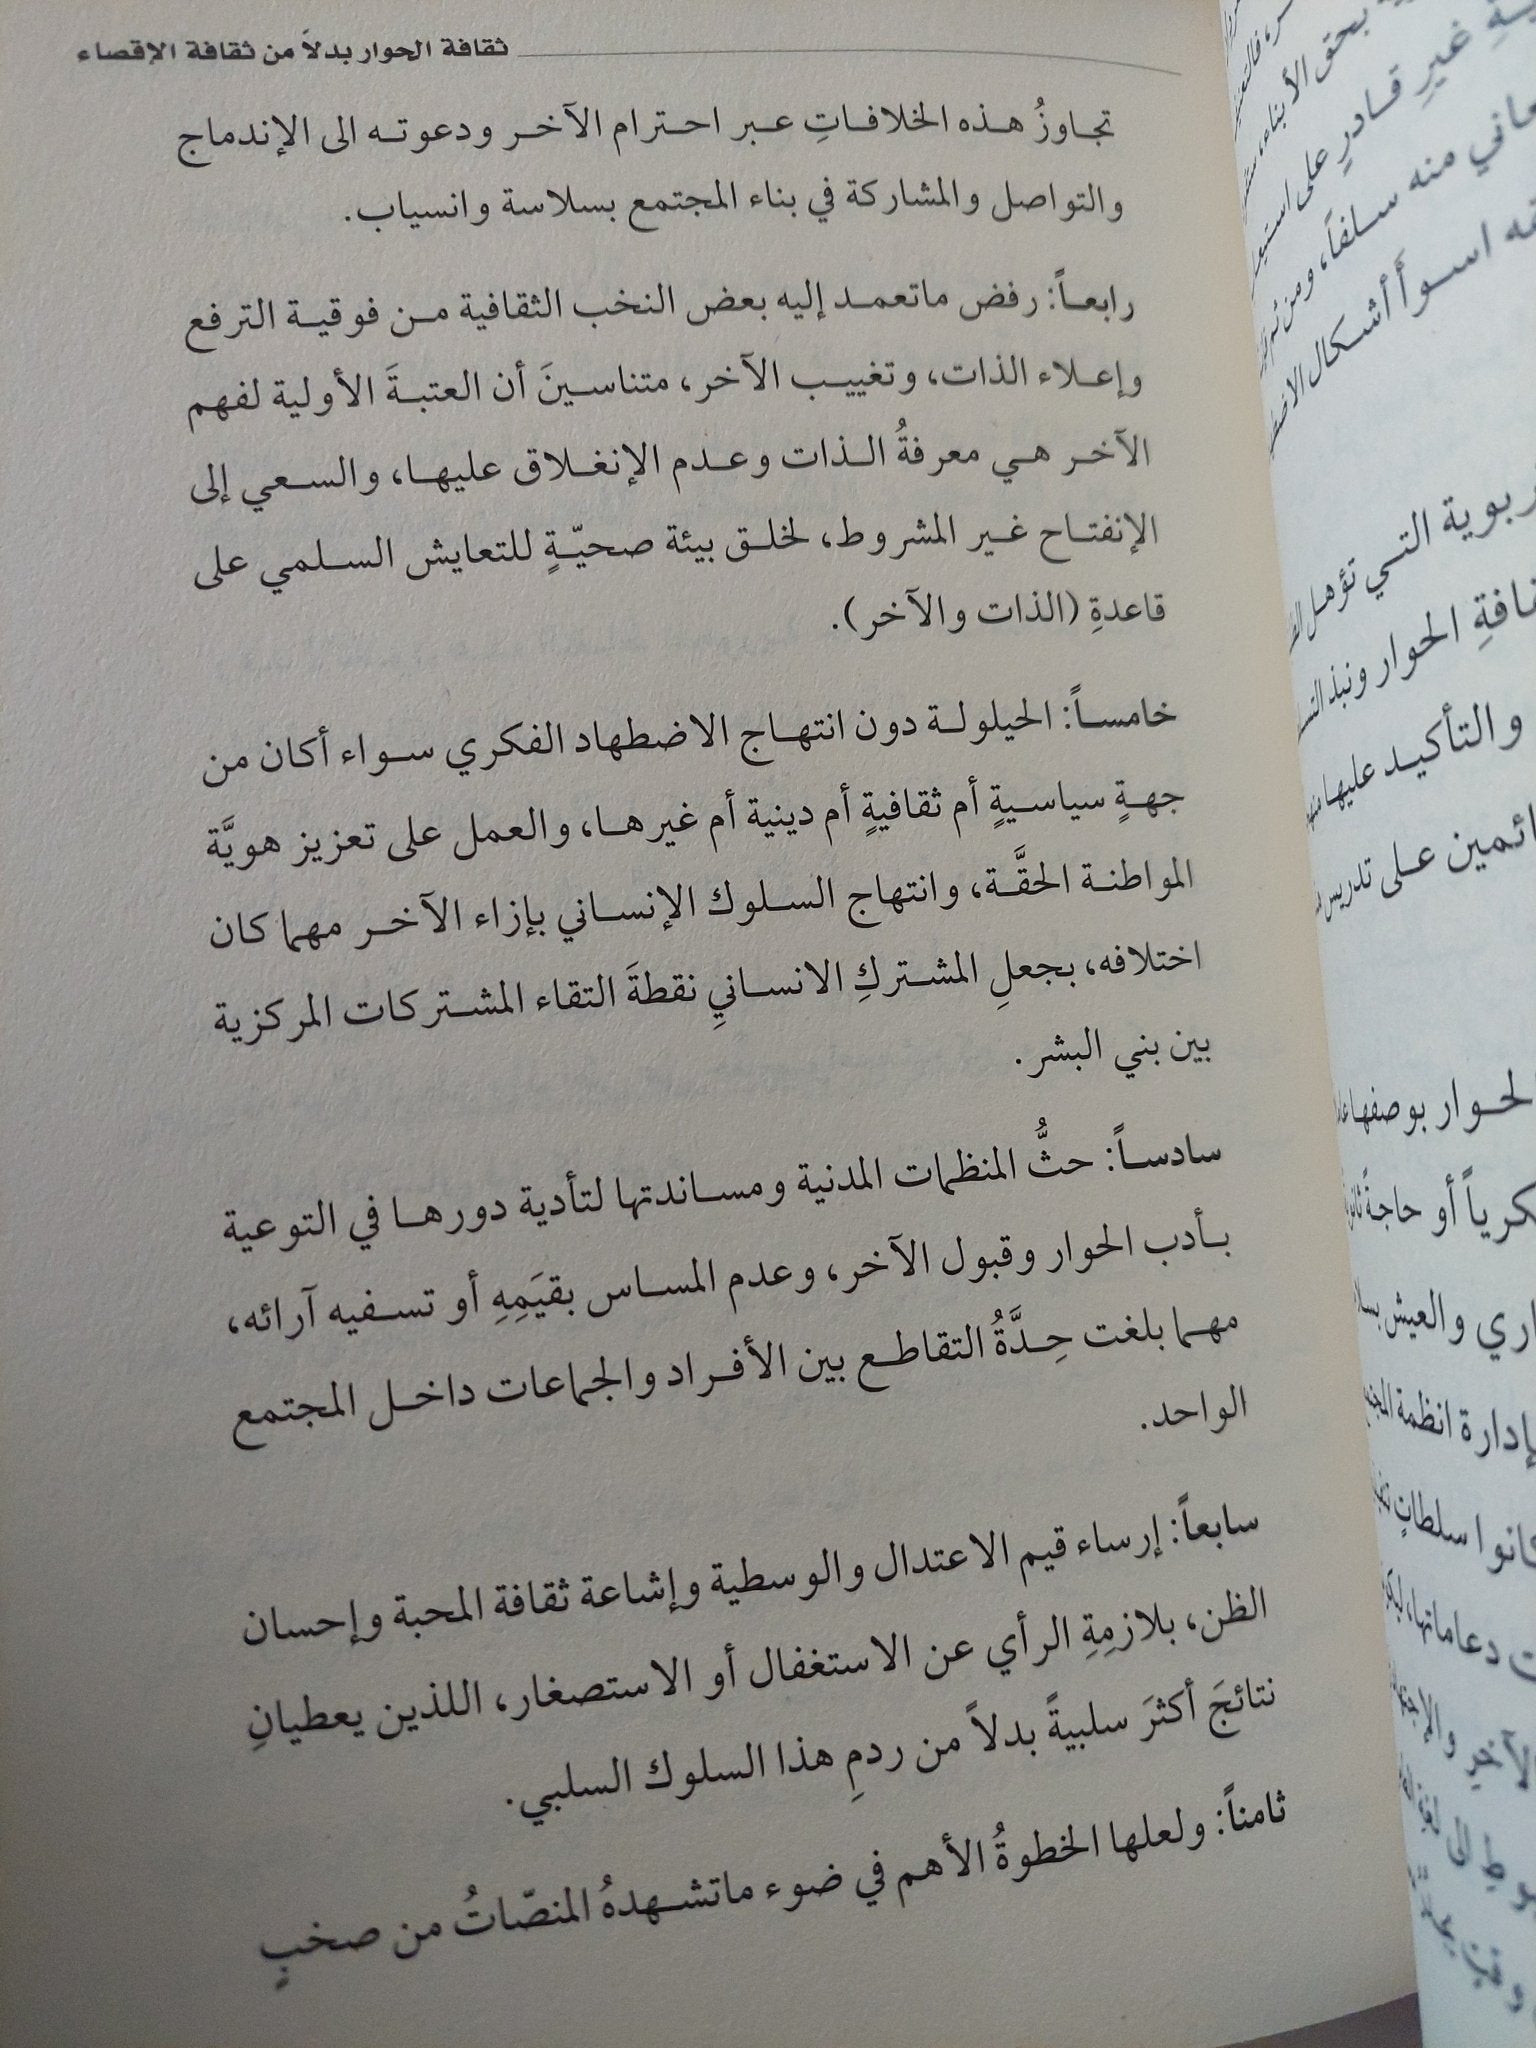 ثقافة الحوار بدلاً من ثقافة الإقصاء
تجاوزُ هذه الخلافاتِ عبر احترام الآخر ودعوته الى الإندماج
والتواصل والمشاركة في بناء المجتمع بسلاسة وانسياب.
رابعاً: رفض ماتعمد إليه بعض النخب الثقافية من فوقية الترفع
وإعلاء الذات، وتغييب الآخر، متناسينَ أن العتبةَ الأولية لفهم
الآخر هي معرفةُ الذات وعدم الإنغلاق عليها، والسعي إلى
الإنفتاح غير المشروط، لخلق بيئة صحيّةٍ للتعايش السلمي على
قاعدةِ (الذات والآخر).
خامساً: الحيلولة دون انتهاج الاضطهاد الفكري سواء أكان من
جهةٍ سياسيةٍ أم ثقافيةٍ أم دينية أم غيرها، والعمل على تعزيز هويَّة
المواطنة الحقَّة، وانتهاج السلوك الإنساني بإزاء الآخر مهما كان
اختلافه، بجعلِ المشتركِ الانسانيِ نقطةَ التقاء المشتركات المركزية
بين بني البشر.
سادساً: حثُّ المنظمات المدنية ومساندتها لتأدية دورها في التوعية
بأدب الحوار وقبول الآخر، وعدم المساس بقيَمِهِ أو تسفيه آرائه،
مهما بلغت حِدَّةُ التقاطع بين الأفراد والجماعات داخل المجتمع
الواحد.
سابعاً: إرساء قيم الاعتدال والوسطية وإشاعة ثقافة المحبة وإحسان
الظن، بلازمِةِ الرأي عن الاستغفال أو الاستصغار، اللذين يعطيانِ
نتائجَ أكثرَ سلبيةً بدلاً من ردمِ هذا السلوك السلبي.
ثامناً: ولعلها الخطوةُ الأهم في ضوء ماتشهدهُ المنصّاتُ من صخبٍ
بحق الأبناء
غيرِ قادرٍ على
منه سلفاً، ومن ثم
اسوأ أشكال
التي تؤهل
الحوار ونبذ
والتأكيد عليها
على تدريس
الحوار بوصفها
أو حاجةً
والعيش
انظمة
سلطاتٍ
دعاماتها،